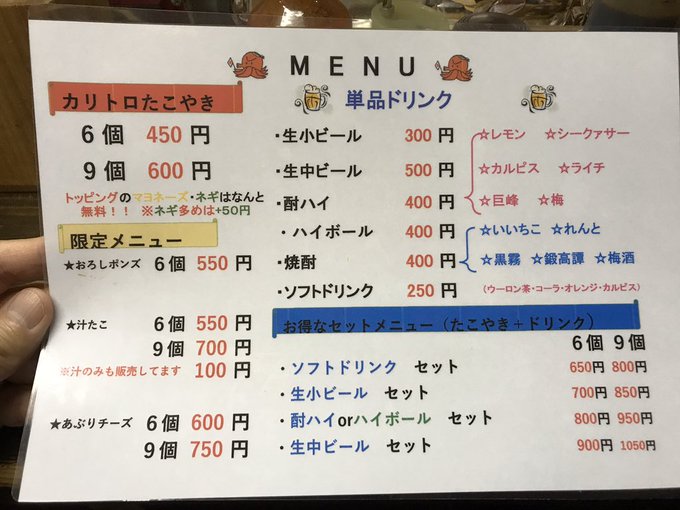 MENU
カリトロたこやき
6個 450円
9個 600円
トッピングのマヨネーズ・ネギはなんと
無料!! ※ネギ多めは+50円
限定メニュー
★おろしポンズ 6個 550円
★汁たこ 6個 550円
9個 700円
※汁のみも販売してます 100円
★あぶりチーズ 6個 600円
9個 750円
単品ドリンク
・生小ビール 300円
・生中ビール 500円
・酎ハイ 400円
・ハイボール 400円
・焼酎 400円
・ソフトドリンク 250円
☆レモン ☆シークァサー
☆カルピス ☆ライチ
☆巨峰 ☆梅
☆いいちこ ☆れんと
☆黒霧 ☆鍛高譚 ☆梅酒
(ウーロン茶・コーラ・オレンジ・カルピス)
お得なセットメニュー(たこやき+ドリンク)
6個 9個
・ソフトドリンク セット 650円 800円
・生小ビール セット 700円 850円
・酎ハイorハイボール セット 800円 950円
・生中ビール セット 900円 1050円